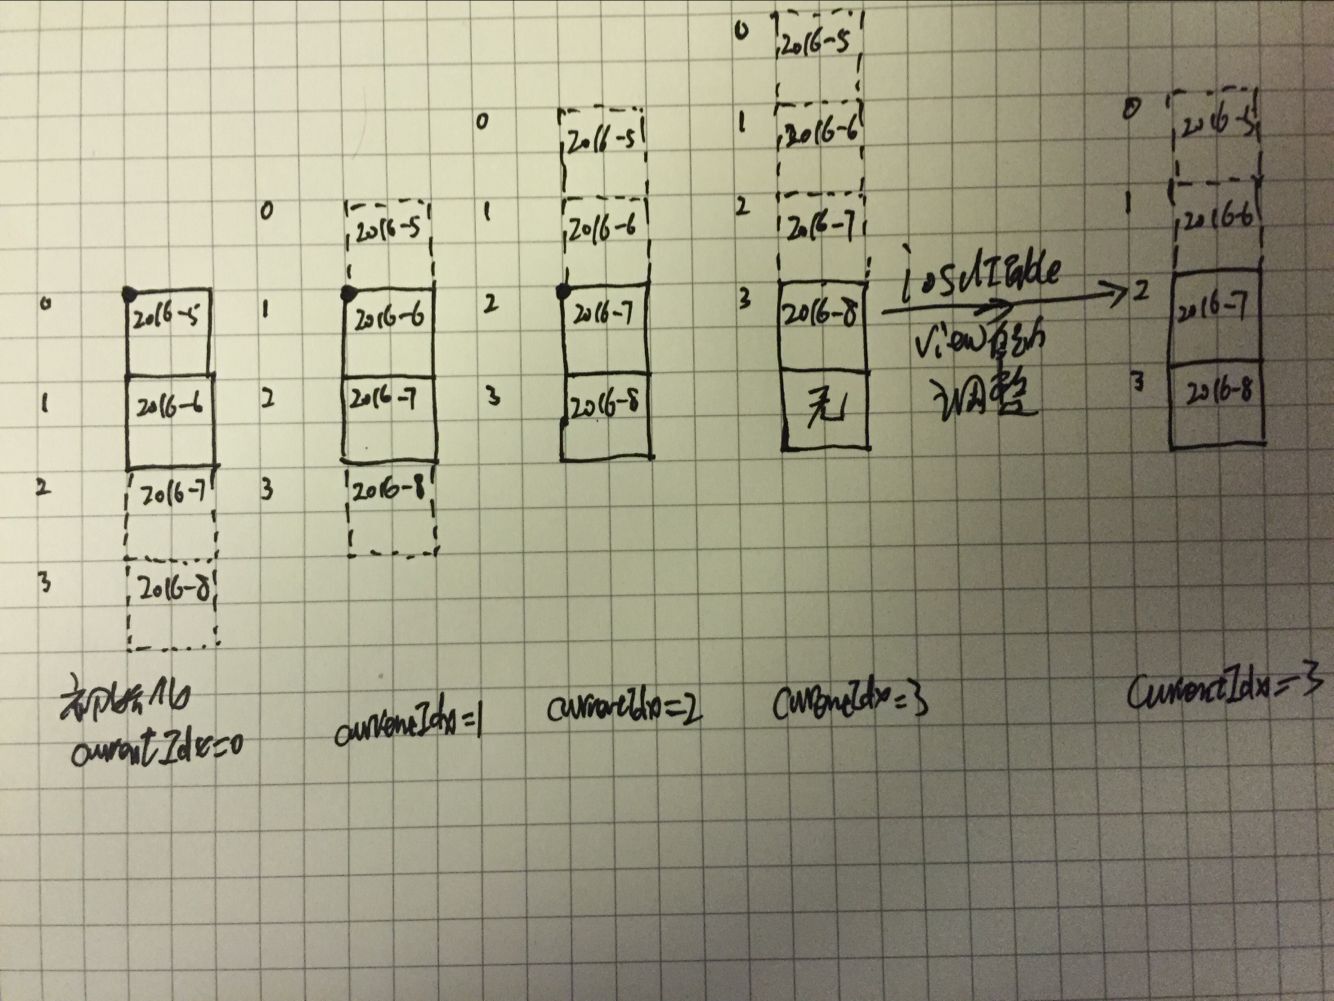 0 2016-5
1 2016-6
2 2016-7
3 2016-8
初始化
currentIdx=0
0 2016-5
1 2016-6
2 2016-7
3 2016-8
currentIdx=1
0 2016-5
1 2016-6
2 2016-7
3 2016-8
currentIdx=2
0 2016-5
1 2016-6
2 2016-7
3 2016-8
无
currentIdx=3
ios的Table
view自动
调整
0 2016-5
1 2016-6
2 2016-7
3 2016-8
currentIdx=3